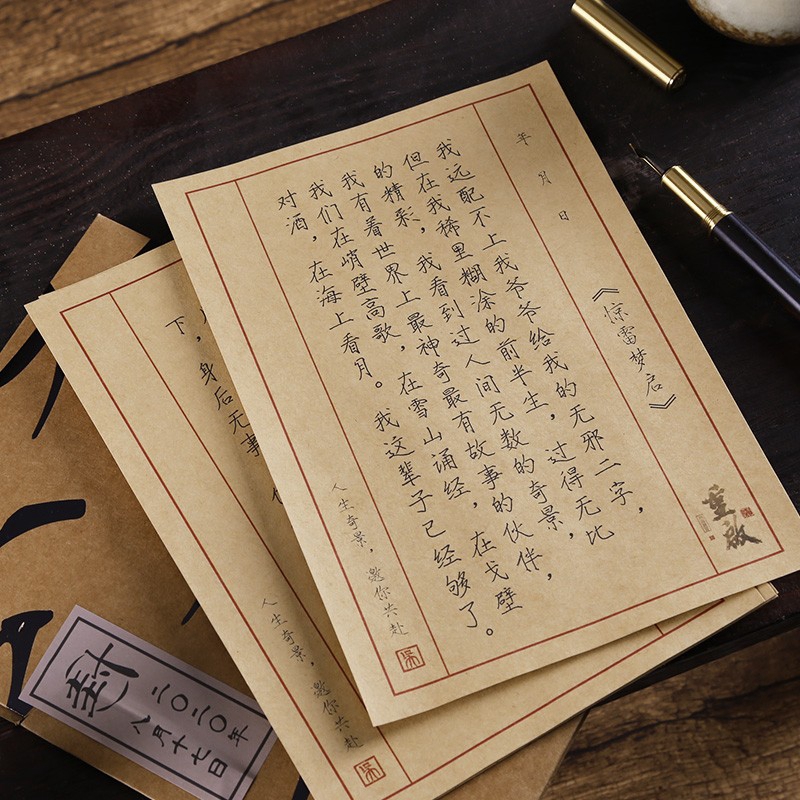 年 月 日
《惊雷梦启》
重启
我远配不上我爷爷给我的无邪二字，
但在我稀里糊涂的前半生，过得无比
的精彩，我看到过人间无数的奇景，
我有着世界上最神奇最有故事的伙伴，
我们在峭壁高歌，在雪山诵经，在戈壁
对酒，在海上看月。我这辈子已经够了。
人生奇景，邀你共赴
吴
下，身后无事
人生奇景，邀你共赴
吴
封
二〇二〇年
八月十七日